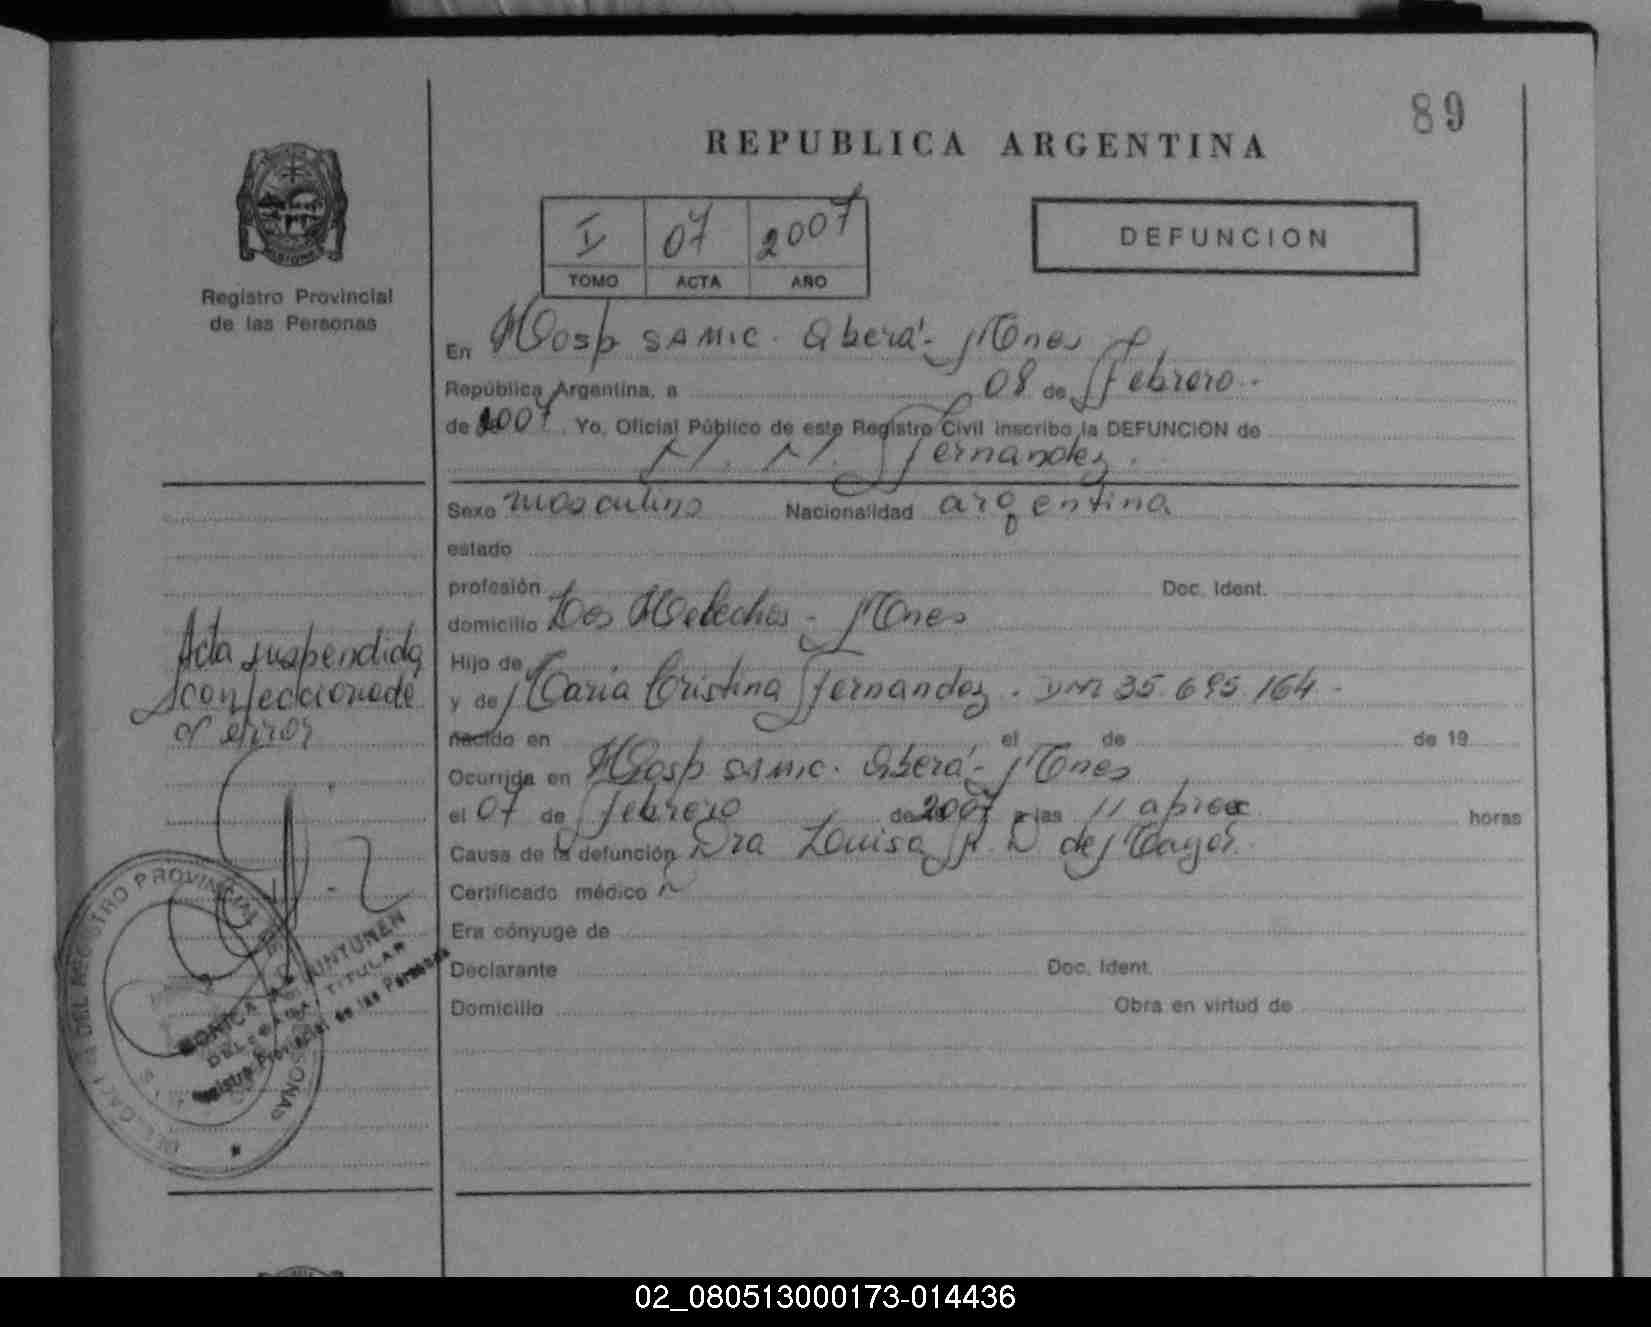 89
REPUBLICA ARGENTINA
I 07 2007
TOMO ACTA AÑO
DEFUNCION
Registro Provincial
de las Personas
En Hosp SAMIC. Oberá - Mnes
República Argentina, a 08 de Febrero.-
de 2007. Yo, Oficial Público de este Registro Civil inscribo la DEFUNCION de
N. N. Fernandez.
Sexo masculino Nacionalidad argentina
estado
profesión Doc. Ident.
domicilio Los Helechos - Mnes
Hijo de
y de Maria Cristina Fernandez. DNI 35.695.164.-
nacido en el de de 19
Ocurrida en Hosp SAMIC. Oberá - Mnes
el 07 de febrero de 2007 a las 11 aprox horas
Causa de la defunción Dra Louisa D de
Certificado médico
Era cónyuge de
Declarante Doc. Ident.
Domicilio Obra en virtud de
Acta suspendida
confeccionada
error
DEL REGISTRO PROVINCIAL
MONICA A.
DELEGADA TITULAR
Registro Provincial de las Personas
02_080513000173-014436